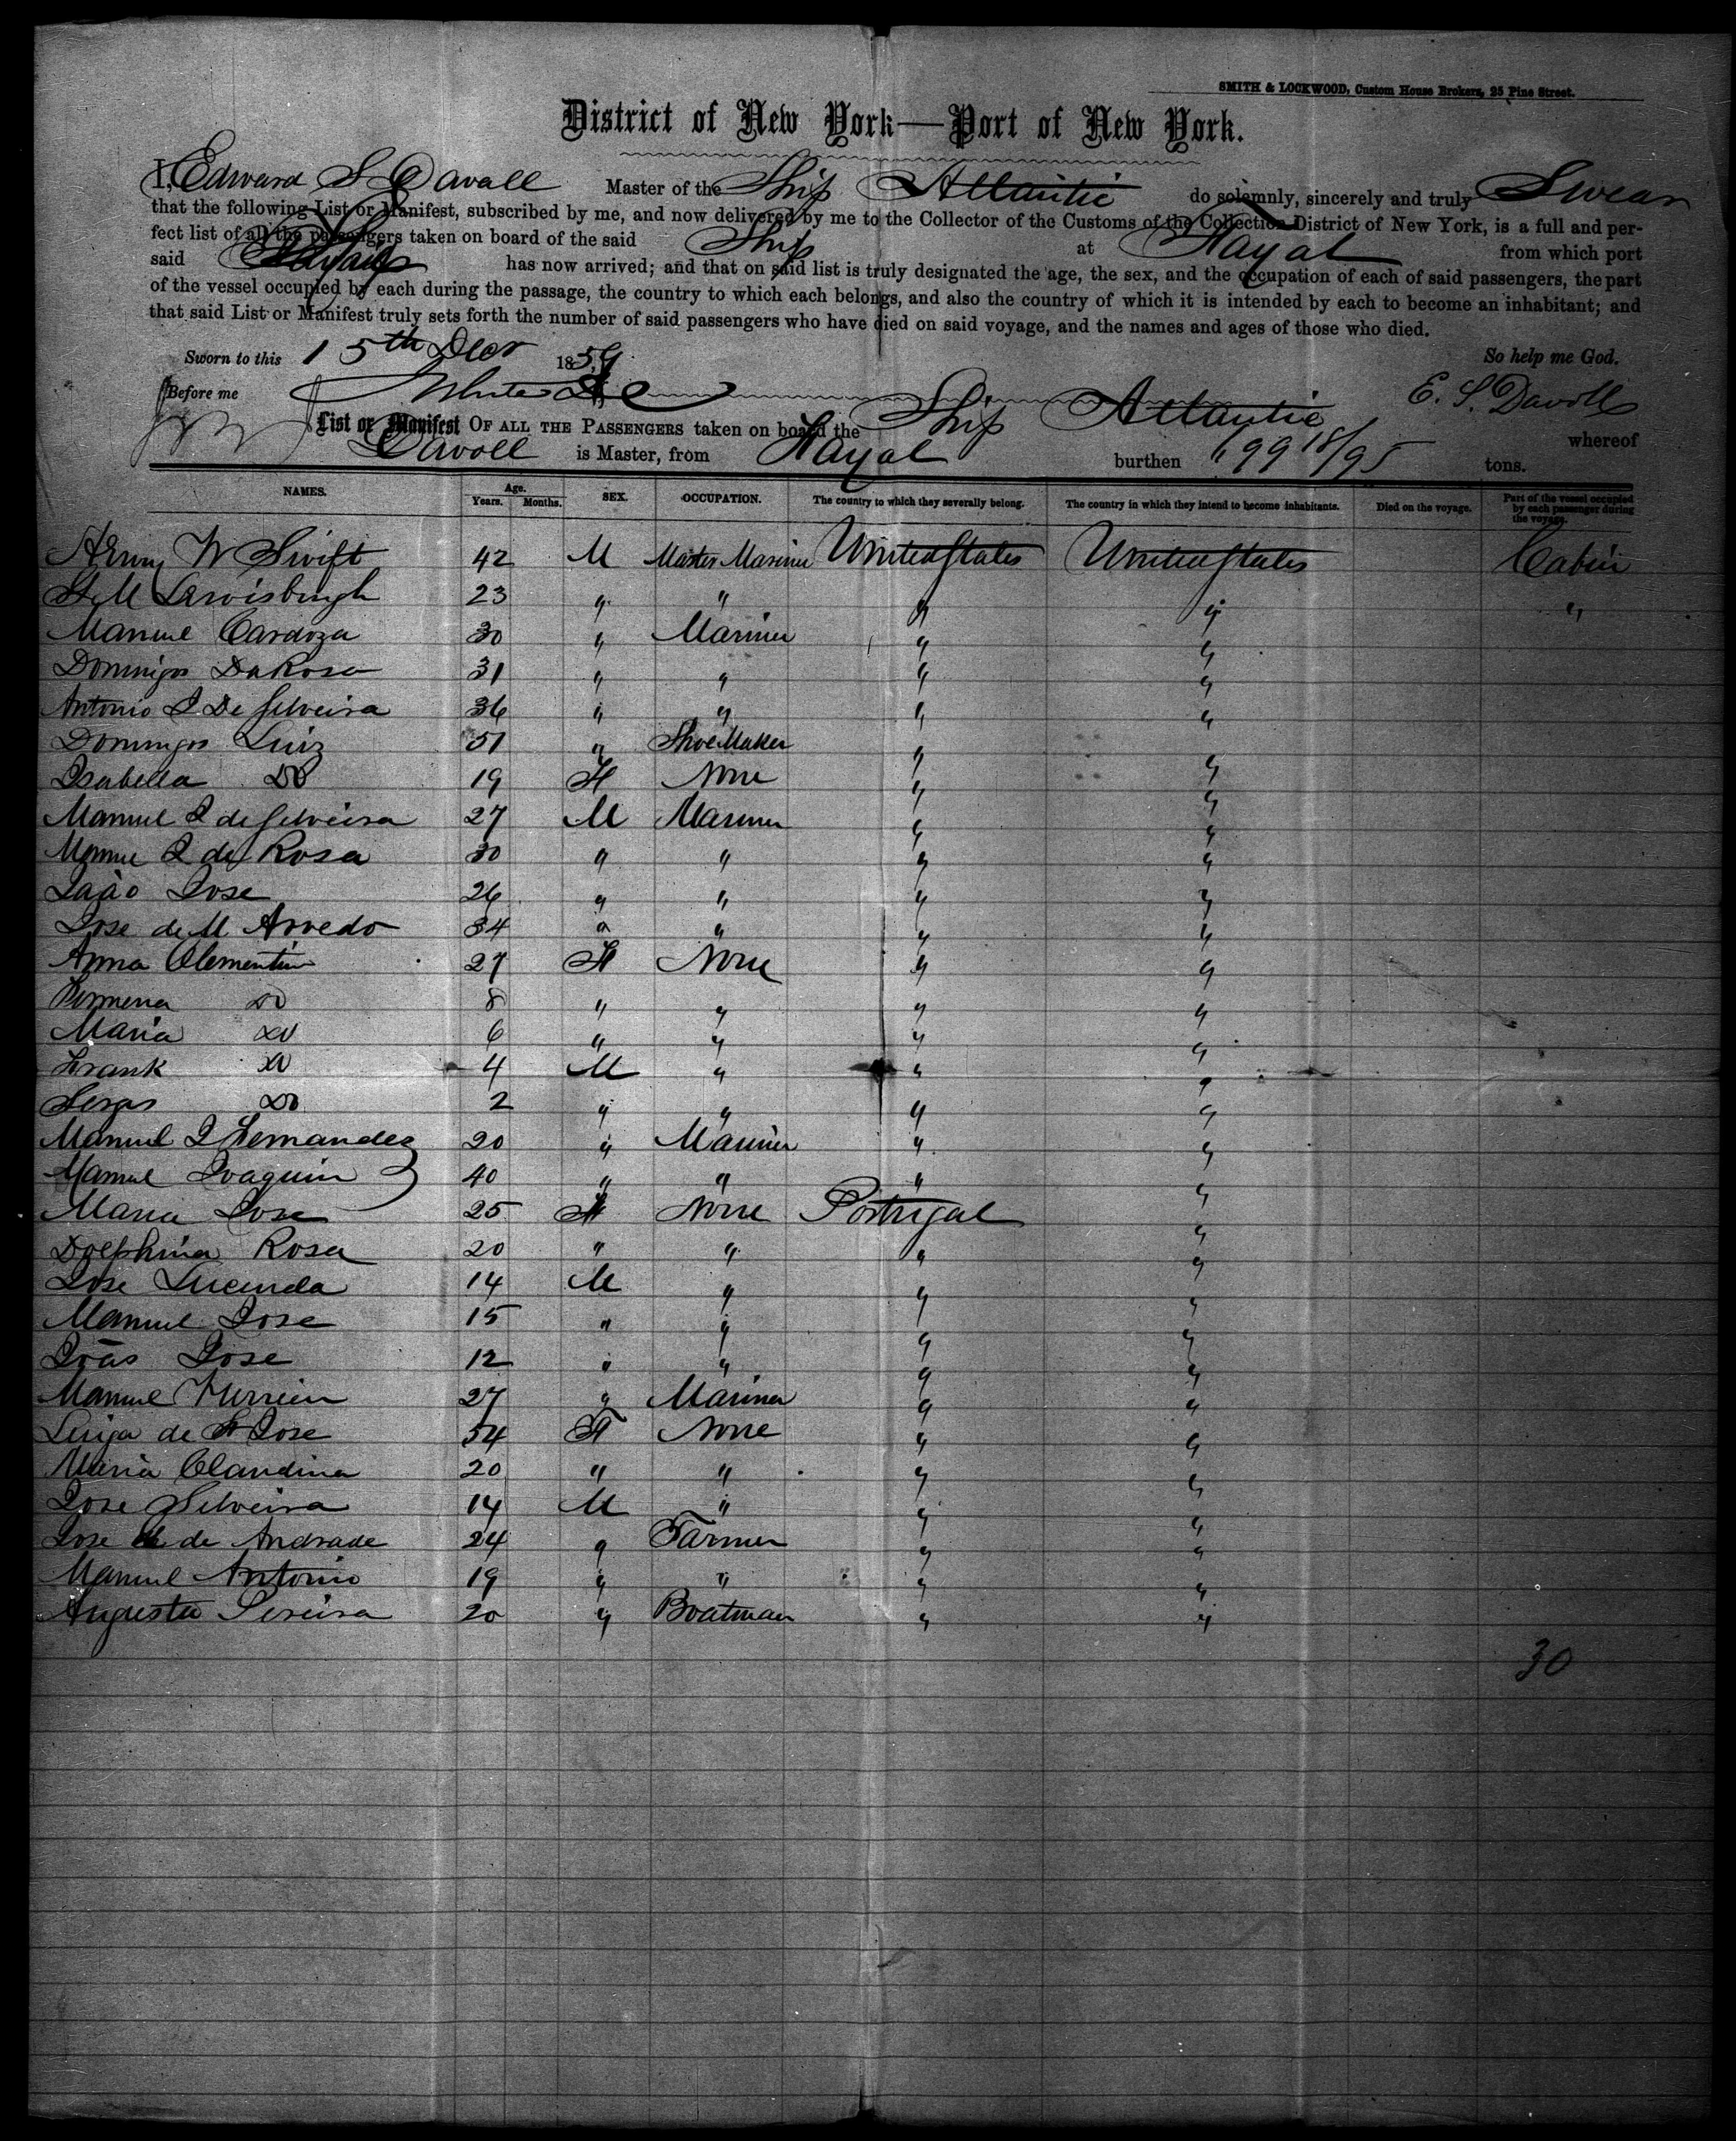 SMITH & LOCKWOOD, Custom House Brokers, 25 Pine Street.
District of New York—Port of New York.
I, Edward S Davoll Master of the Ship Atlantic do solemnly, sincerely and truly Swear
that the following List or Manifest, subscribed by me, and now delivered by me to the Collector of the Customs of the Collection District of New York, is a full and per-
fect list of all the passengers taken on board of the said Ship at Fayal from which port
said has now arrived; and that on said list is truly designated the age, the sex, and the occupation of each of said passengers, the part
of the vessel occupied by each during the passage, the country to which each belongs, and also the country of which it is intended by each to become an inhabitant; and
that said List or Manifest truly sets forth the number of said passengers who have died on said voyage, and the names and ages of those who died.
Sworn to this 15th Decr 1859 So help me God.
Before me E. S. Davoll
List or Manifest OF ALL THE PASSENGERS taken on board the Ship Atlantic whereof
Davoll is Master, from Fayal burthen 699 18/95 tons.
NAMES. Age. Years. Months. SEX. OCCUPATION. The country to which they severally belong. The country in which they intend to become inhabitants. Died on the voyage. Part of the vessel occupied by each passenger during the voyage.
Henry W Swift 42 M Master Mariner United States United States Cabin
23 " " " " "
Manuel Cardoza 30 " Mariner " "
Domingos DaRosa 31 " " " "
Antonio I De Silveira 36 " " " "
Domingos Luiz 51 " Shoe Maker " "
Isabella Do 19 F None " "
Manuel I de Silveira 27 M Mariner " "
I de Rosa 30 " " " "
Joao Jose 26 " " " "
Jose de M Asvedo 34 " " " "
Anna Clementin 27 F None " "
Do 8 " " " "
Maria Do 6 " " " "
Frank Do 4 M " " "
Do 2 " " " "
Manuel I Fernandez 20 " Mariner " "
Manuel Joaquin 40 " " " "
Maria Jose 25 F None Portugal "
Dolphina Rosa 20 " " " "
Jose Lucinda 14 M " " "
Manuel Jose 15 " " " "
Joas Jose 12 " " " "
Manuel 27 " Mariner " "
de Jose 54 F None " "
Maria Claudina 20 " " " "
Jose Silveira 14 M " " "
Jose de Andrade 24 " Farmer " "
Manuel Antonio 19 " " " "
Augusta Pereira 20 " Boatman " "
30